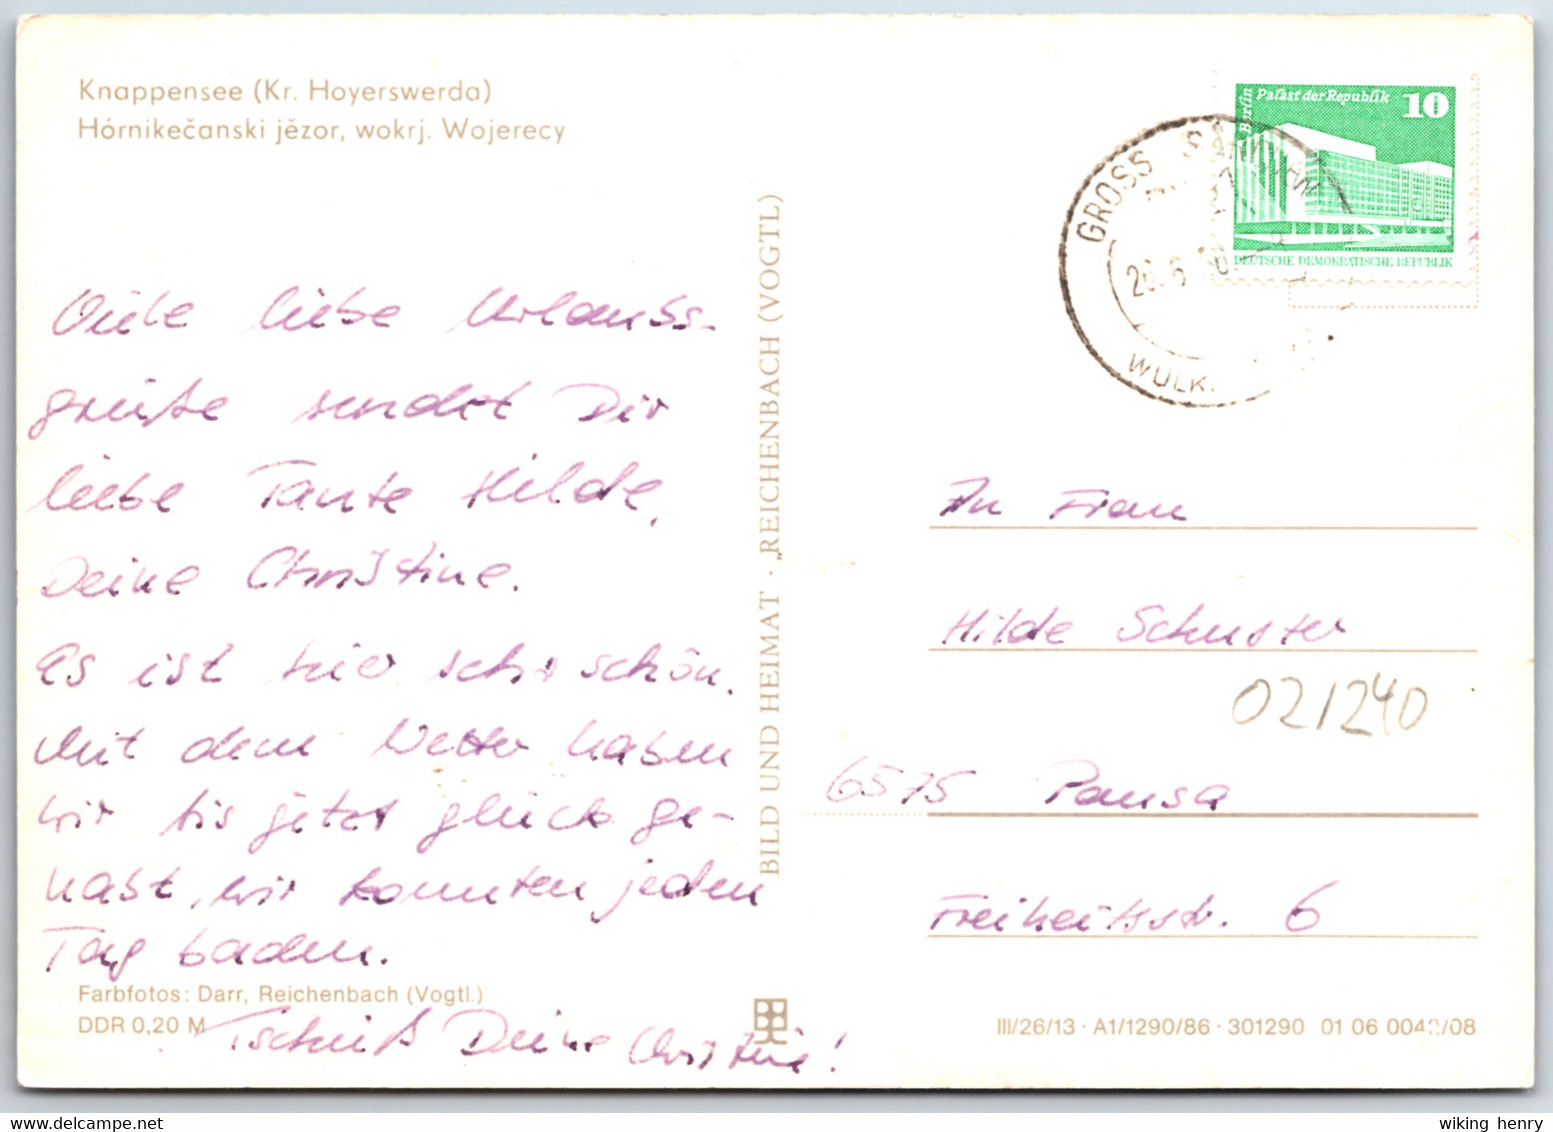 Knappensee (Kr. Hoyerswerda)
Hórnikečanski jězor, wokrj. Wojerecy
Viele liebe Urlaubs-
grüße sendet Dir
liebe Tante Hilde,
Deine Christine.
Es ist hier sehr schön.
Mit dem Wetter haben
wir bis jetzt glück ge-
habt, wir konnten jeden
Tag baden.
Tschüß Deine Christine!
Farbfotos: Darr, Reichenbach (Vogtl.)
DDR 0,20 M
BILD UND HEIMAT · „REICHENBACH (VOGTL)
Berlin Palast der Republik 10
DEUTSCHE DEMOKRATISCHE REPUBLIK
GROSS SÄRCHEN
26. 6.
WULK
An Frau
Hilde Schuster
021240
6575 Pausa
Freiheitsstr. 6
III/26/13 · A1/1290/86 · 301290 01 06 0042/08
wiking henry